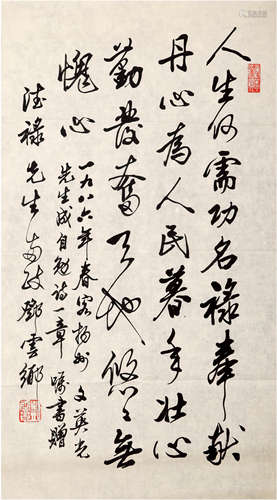 人生何需功名禄奉献
丹心为人民暮年壮心
勤发奋天地悠悠无
愧心
一九八六年春客扬州文英光
先生成自勉诗一章嘱书赠
德禄先生两政邓云乡